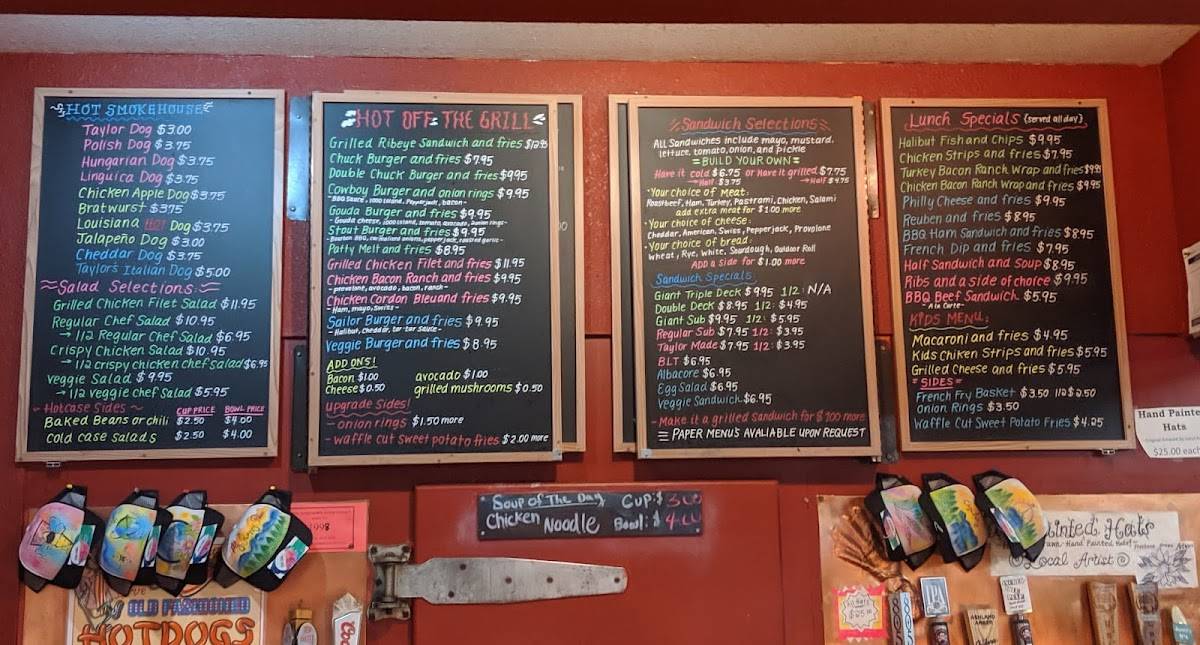 HOT SMOKEHOUSE
Taylor Dog $3.00
Polish Dog $3.75
Hungarian Dog $3.75
Linguica Dog $3.75
Chicken Apple Dog $3.75
Bratwurst $3.75
Louisiana HOT Dog $3.75
Jalapeño Dog $3.00
Cheddar Dog $3.75
Taylor's Italian Dog $5.00
Salad Selections:
Grilled Chicken Filet Salad $11.95
Regular Chef Salad $10.95
→ 1/2 Regular Chef Salad $6.95
Crispy Chicken Salad $10.95
→ 1/2 crispy chicken chef salad $6.95
Veggie Salad $9.95
→ 1/2 veggie chef Salad $5.95
- Hotcase Sides ~ CUP PRICE BOWL PRICE
Baked Beans or chili $2.50 $4.00
cold case salads $2.50 $4.00
HOT OFF THE GRILL
Grilled Ribeye Sandwich and fries $12.95
Chuck Burger and fries $7.95
Double Chuck Burger and fries $9.95
Cowboy Burger and onion rings $9.95
- BBQ Sauce, 1000 Island, Pepperjack, bacon -
Gouda Burger and fries $9.95
- Gouda cheese, 1000 island, tomato, avocado, onion rings -
Stout Burger and fries $9.95
- Bourbon BBQ, carmalized onions, pepperjack, roasted garlic -
Patty Melt and fries $8.95
Grilled Chicken Filet and fries $11.95
Chicken Bacon Ranch and fries $9.95
- provolone, avocado, bacon, ranch -
Chicken Cordon Bleu and fries $9.95
- Ham, mayo, Swiss
Sailor Burger and fries $9.95
- Halibut, cheddar, tar tar sauce -
Veggie Burger and fries $8.95
ADD ONS!
Bacon $1.00 avocado $1.00
Cheese $0.50 grilled mushrooms $0.50
upgrade Sides!
- onion rings $1.50 more
- waffle cut sweet potato fries $2.00 more
Sandwich Selections
All Sandwiches include mayo, mustard,
lettuce, tomato, onion, and pickle
= BUILD YOUR OWN =
Have it cold $6.75 or Have it grilled $7.75
→ Half $3.75 → Half $4.75
· Your choice of Meat:
Roastbeef, Ham, Turkey, Pastrami, Chicken, Salami
add extra meat for $1.00 more
· Your choice of cheese:
Cheddar, American, Swiss, Pepperjack, Provolone
· Your choice of bread:
Wheat, Rye, White, Sourdough, Outdoor Roll
ADD a side for $1.00 more
Sandwich Specials
Giant Triple Deck $9.95 1/2: N/A
Double Deck $8.95 1/2: $4.95
Giant Sub $9.95 1/2: $5.95
Regular Sub $7.95 1/2: $3.95
Taylor Made $7.95 1/2: $3.95
BLT $6.95
Albacore $6.95
Egg Salad $6.95
Veggie Sandwich $6.95
- Make it a grilled Sandwich for $1.00 more
= PAPER MENU'S AVALIABLE UPON REQUEST
Lunch Specials {served all day}
Halibut Fish and Chips $9.95
Chicken Strips and fries $7.95
Turkey Bacon Ranch Wrap and fries $9.95
Chicken Bacon Ranch Wrap and fries $9.95
Philly Cheese and fries $9.95
Reuben and fries $8.95
BBQ Ham Sandwich and fries $8.95
French Dip and fries $7.95
Half Sandwich and Soup $8.95
Ribs and a side of choice $9.95
BBQ Beef Sandwich $5.95
- A la Carte -
KIDS MENU:
Macaroni and fries $4.95
Kids Chiken Strips and fries $5.95
Grilled Cheese and fries $5.95
= SIDES =
French Fry Basket $3.50 1/2 $2.50
onion Rings $3.50
Waffle Cut Sweet Potato Fries $4.25
Hand Painted
Hats
$25.00 each
Soup of The Day Cup: $3.00
Chicken Noodle Bowl: $4.00
1998
OLD FASHIONED
HOTDOGS
Painted Hats
Hand Painted Hats!
Local Artist